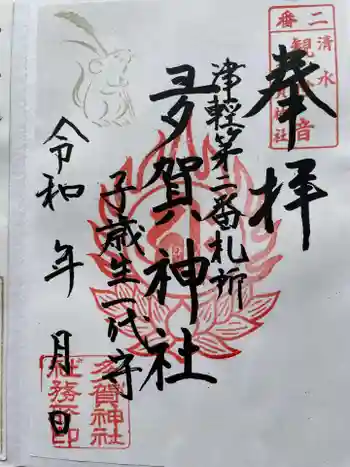 二番
清水
観音
多賀神社
奉拝
津軽第二番札所
多賀神社
子歳生一代守
令和 年 月 日
多賀神社
社務所印